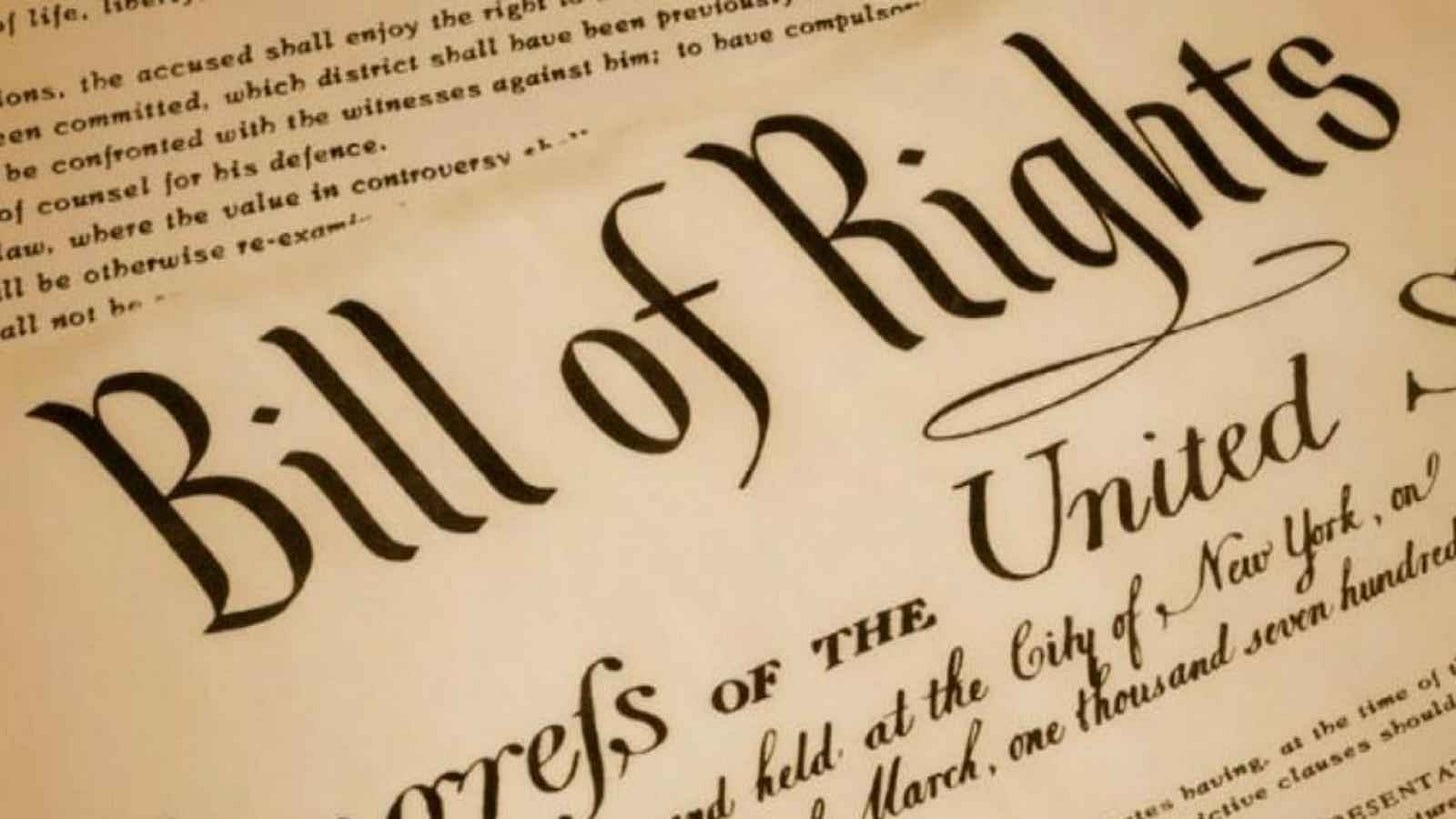 of life, liberty
ions, the accused shall enjoy the right to
een committed, which district shall have been previously
be confronted with the witnesses against him; to have compulsor
of counsel for his defence.
law, where the value in controversy sh
ll be otherwise re-exami
all not be
Bill of Rights
greſs OF THE United S
nd held at the City of New York, on
March, one thousand seven hundred
tes having, at the time of
ictive clauses should
RESENTAT